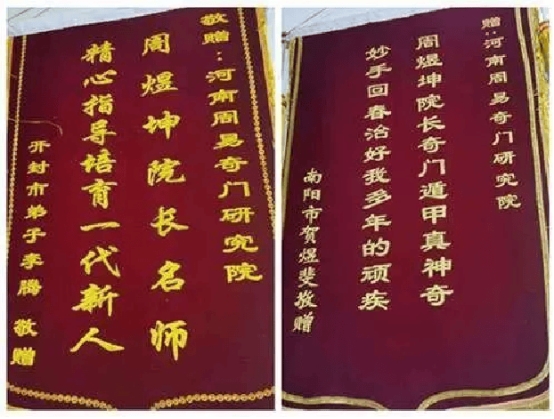 敬赠：河南周易奇门研究院
周煜坤院长名师
精心指导培育一代新人
开封市弟子李腾敬赠
赠：河南周易奇门研究院
周煜坤院长奇门遁甲真神奇
妙手回春治好我多年的顽疾
南阳市贺煜斐敬赠